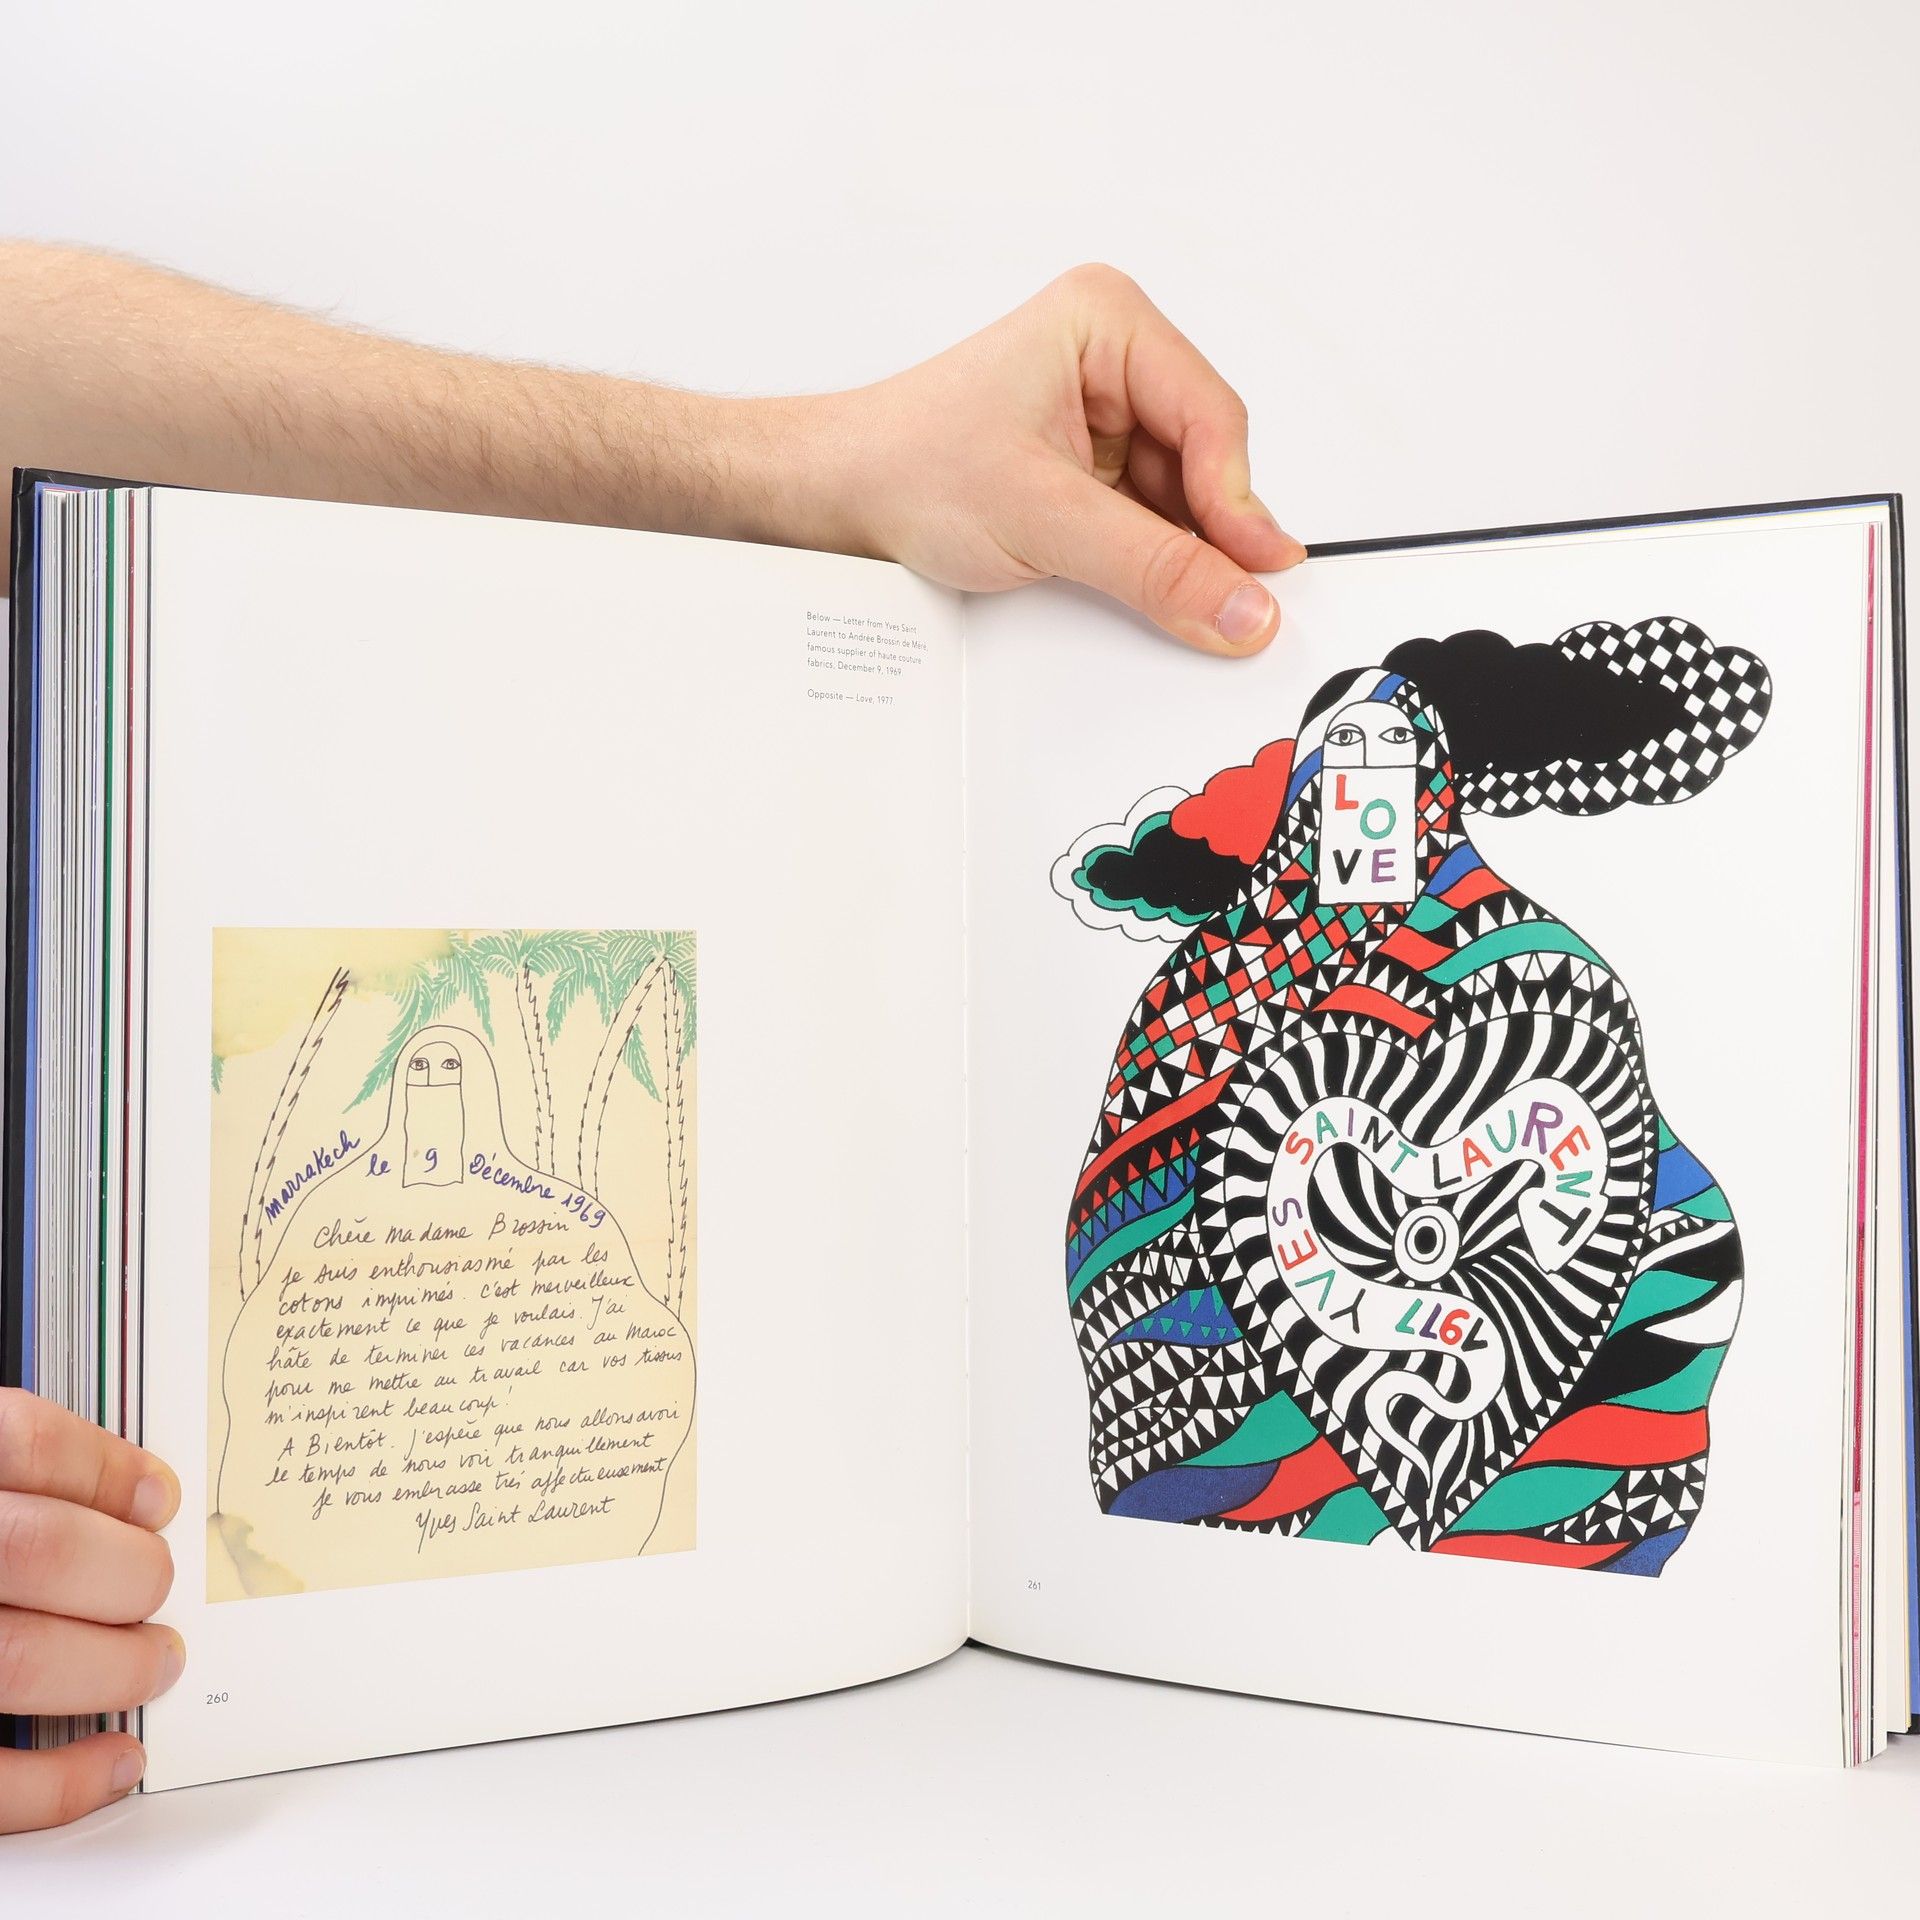 Below — Letter from Yves Saint
Laurent to Andrée Brossin de Méré,
famous supplier of haute couture
fabrics, December 9, 1969
Opposite — Love, 1977.
Marrakech le 9 Décembre 1969
Chère Madame Brossin
je suis enthousiasmé par les
cotons imprimés. c'est merveilleux
exactement ce que je voulais. J'ai
hâte de terminer ces vacances au Maroc
pour me mettre au travail car vos tissus
m'inspirent beaucoup!
A Bientôt. J'espère que nous allons avoir
le temps de nous voir tranquillement
je vous embrasse très affectueusement
Yves Saint Laurent
260
L
O
VE
YVES SAINT LAURENT
1977
261